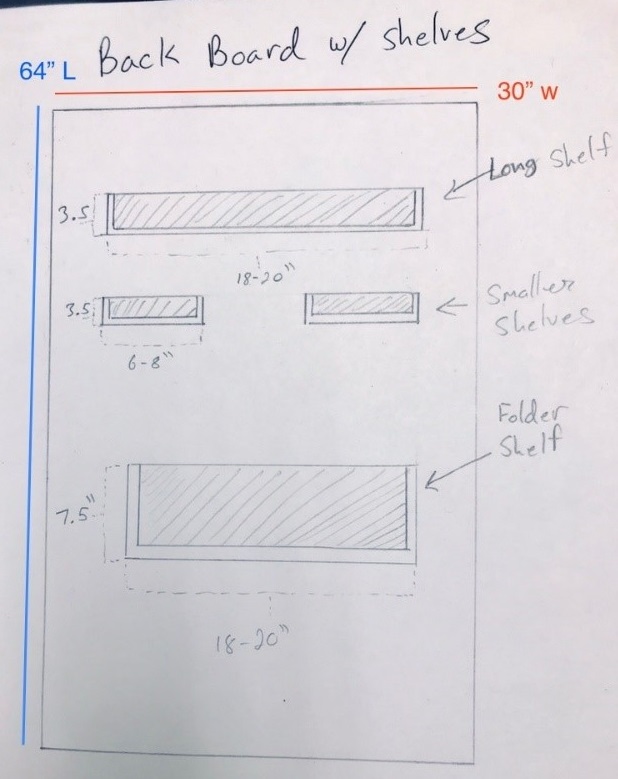 Back Board w/ shelves
64" L
30" w
Long Shelf
3.5
18-20"
3.5
Smaller
Shelves
6-8"
Folder
Shelf
7.5"
18-20"